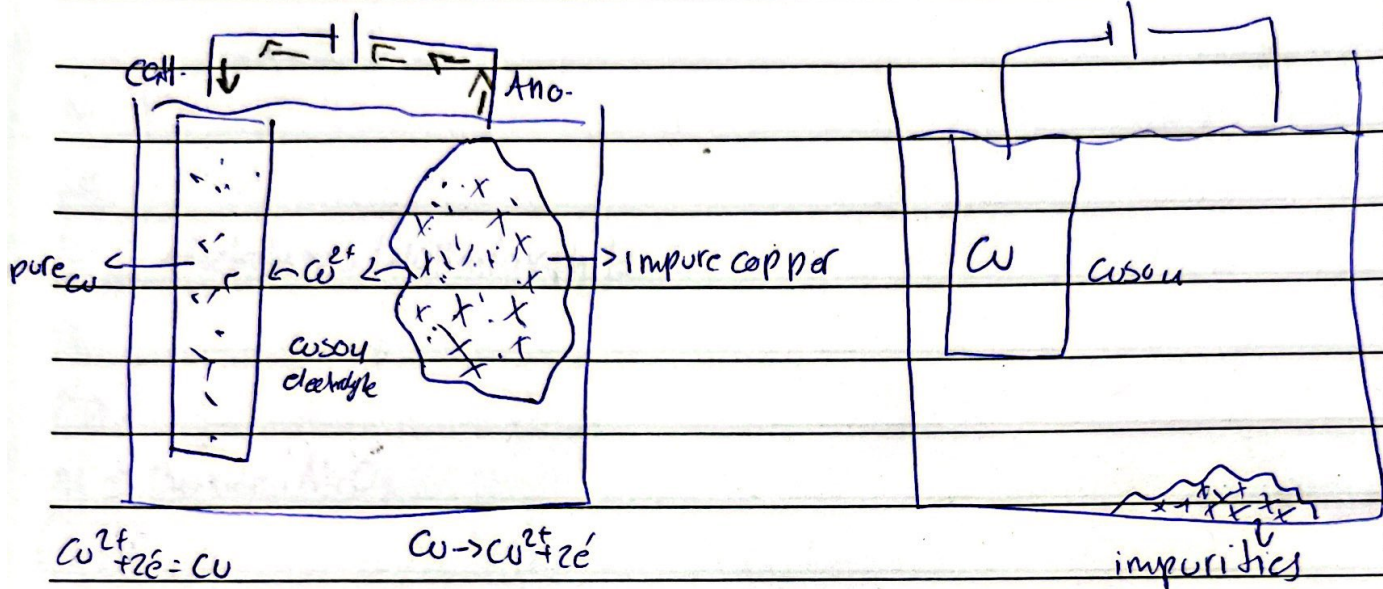 Cath.
Ano.
pure Cu
Cu²⁺
impure copper
CuSO4
electrolyte
Cu²⁺ + 2é = Cu
Cu → Cu²⁺ + 2é
Cu
CuSO4
impurities